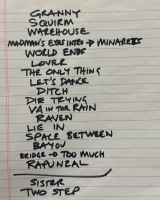 GRANNY
SQUIRM
WAREHOUSE
MADMAN'S EYES INTRO → MINARETS
WORLD ENDS
LOVER
THE ONLY THING
LET'S DANCE
DITCH
DIE TRYING
VA IN THE RAIN
RAVEN
LIE IN
SPACE BETWEEN
BAYOU
BRIDGE → TOO MUCH
RAPUNZAL
SISTER
TWO STEP